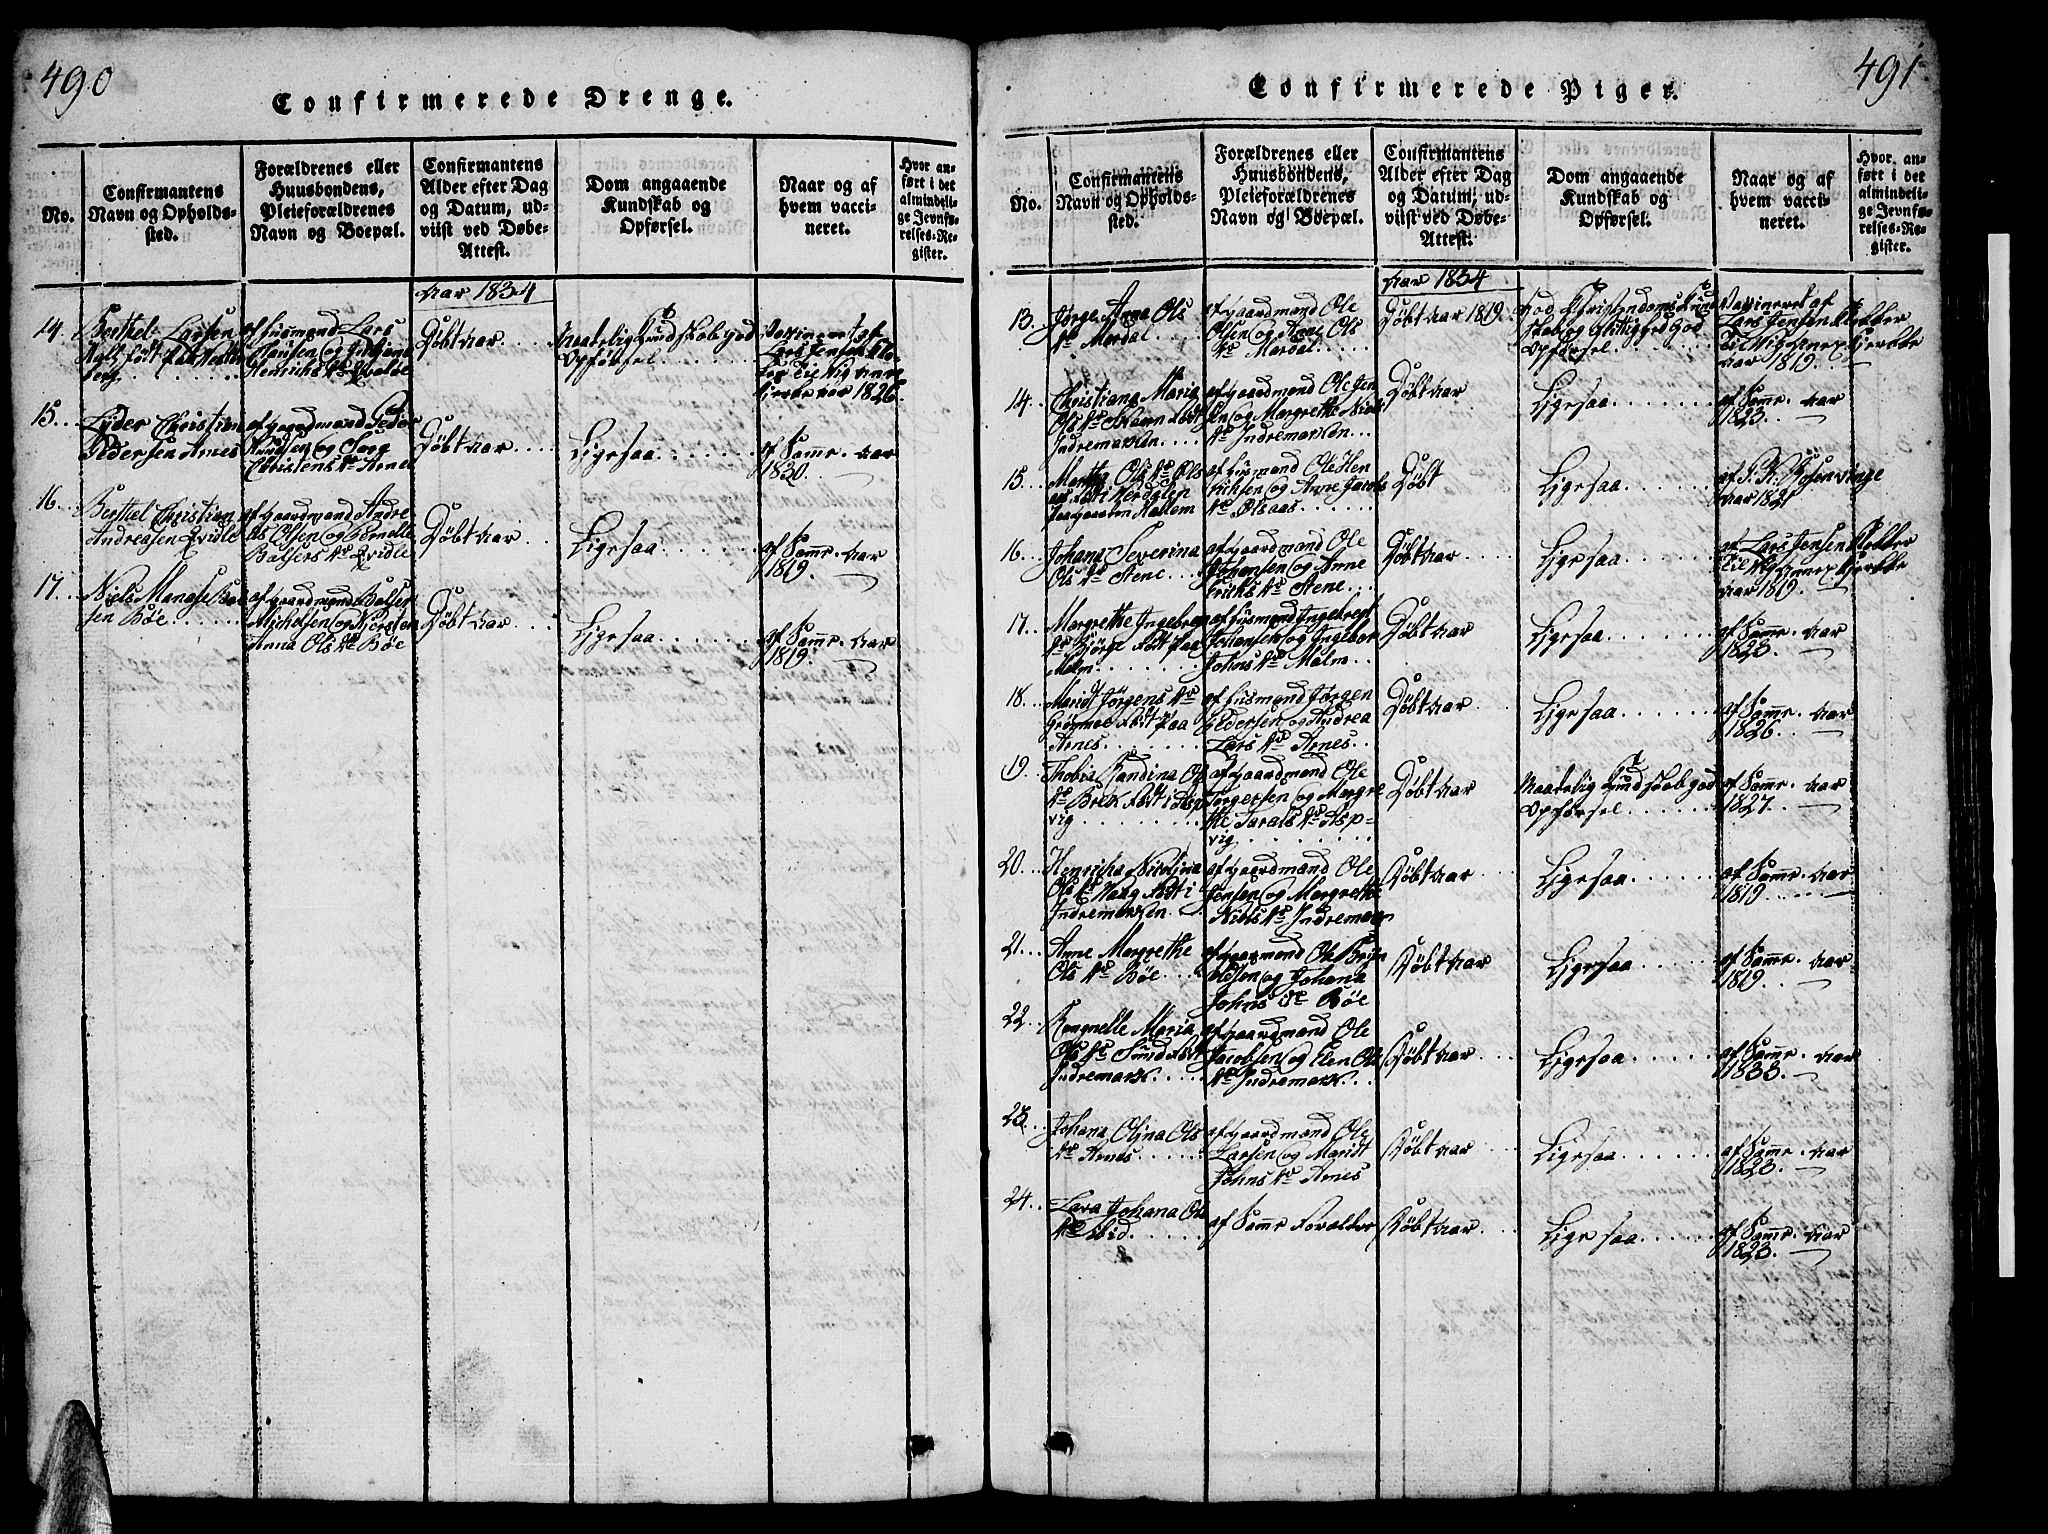 490
Confirmerede Drenge.
No.
Confirmantens
Navn og Opholds-
sted.
Forældrenes eller
Huusbondens,
Pleieforældrenes
Navn og Boepæl.
Confirmantens
Alder efter Dag
og Datum, ud-
viist ved Døbe-
Attest.
Dom angaaende
Kundskab og
Opførsel.
Naar og af
hvem vacci-
neret.
Hvor an-
ført i det
almindeli-
ge Jevnfø-
relses-Re-
gister.
Aar 1834
14.
Berthel Larsen
af Husmand Lars
Hansen og
Henrichs Dr
Døbt Aar
Maadelig Kundskab god
Opførsel
Vaccineret af
Lars Jensen
Kjerke aar 1826.
15.
Lyder Christian
Pedersen Arnes
af Gaardmand Peder
Knudsen og Sara
Christens Dr Arnes
Døbt Aar
Ligesaa
af Samme Aar
1830.
16.
Berthel Christian
Andreasen Qvidle
af Gaardmand Andre-
as Olsen og Pernelle
Balsers Dr Qvidle
Døbt Aar
Ligesaa
af Samme Aar
1819.
17.
Niels Manase Bal-
sen Böe
af Gaardmand Balser
Michelsen og Kirsten
Anna Ols Dr Böe
Døbt Aar
Ligesaa
af Samme Aar
1819.
491
Confirmerede Piger.
No.
Confirmantens
Navn og Opholds-
sted.
Forældrenes eller
Huusbondens,
Pleieforældrenes
Navn og Boepæl.
Confirmantens
Alder efter Dag
og Datum, ud-
viist ved Døbe-
Attest.
Dom angaaende
Kundskab og
Opførsel.
Naar og af
hvem vacci-
neret.
Hvor an-
ført i det
almindeli-
ge Jevnfø-
relses-Re-
gister.
Aar 1834
13.
Anna Ols
Dr Mardal
af Gaardmand Ole
Olsen og Anne Ols
Dr Mardal
Døbt Aar 1819
God Christendoms Kund-
skab og Flittighed God
Opførsel
Vaccineret af
Lars Jensen Klokker
til Vig Annex Kjerke
Aar 1819.
14.
Christiana Maria
Ols Dr
Indremarken
af Gaardmand Ole Jen-
sen og Margrethe Niels
Dr Indremarken
Døbt Aar
Ligesaa
af Samme Aar
1823.
15.
Martha Ols Dr Ols-
aas
af Husmand Ole Hen-
richsen og Anne Jacobs
Dr Olsaas
Døbt
Ligesaa
af Rosenvinge
Aar 1821
16.
Johana Severina
Ols Dr Stene
af Gaardmand Ole
Johansen og Anne
Erichs Dr Stene
Døbt Aar
Ligesaa
af Lars Jensen Klokker
til Vig Annex Kjerke
Aar 1819.
17.
Margrethe Ingebregt
Dr Björge født paa
Malm
af Husmand Ingebregt
Johansen og Ingebor
Johns Dr Malm
Døbt Aar
Ligesaa
af Samme Aar
1823.
18.
Maridt Jörgens Dr
født paa
Arnes
af Husmand Jørgen
Pedersen og Andrea
Lars Dr Arnes
Døbt Aar
Ligesaa
af Samme Aar
1826.
19.
Thobia Randina Ols
Dr Brek født i Asp-
vig
af Gaardmand Ole
Torgersen og Margre-
the Dr Asp-
vig
Døbt Aar
Maadelig Kundskab god
Opførsel
af Samme Aar
1827.
20.
Henricha Nicolina
Ols Dr Haug født i
Indremarken
af Gaardmand Ole
Jensen og Margrethe
Niels Dr Indremarken
Døbt Aar
Ligesaa
af Samme Aar
1819.
21.
Anne Margrethe
Ols Dr Böe
af Gaardmand Ole
og Johana
Johns Dr Böe
Døbt Aar
Ligesaa
af Samme Aar
1819.
22.
Maria
Ols Dr Sund født
Indremark
af Gaardmand Ole
Jacobsen og Elen Ols
Dr Indremark
Døbt Aar
Ligesaa
af Samme Aar
1833.
23.
Johana Olina Ols
Dr Arnes
af Gaardmand Ole
Larsen og Maridt
Johns Dr Arnes
Døbt Aar
Ligesaa
af Samme Aar
1823.
24.
Lava Johana Ols
Dr Ibid
af Samme Forældre
Døbt Aar
Ligesaa
af Samme Aar
1823.